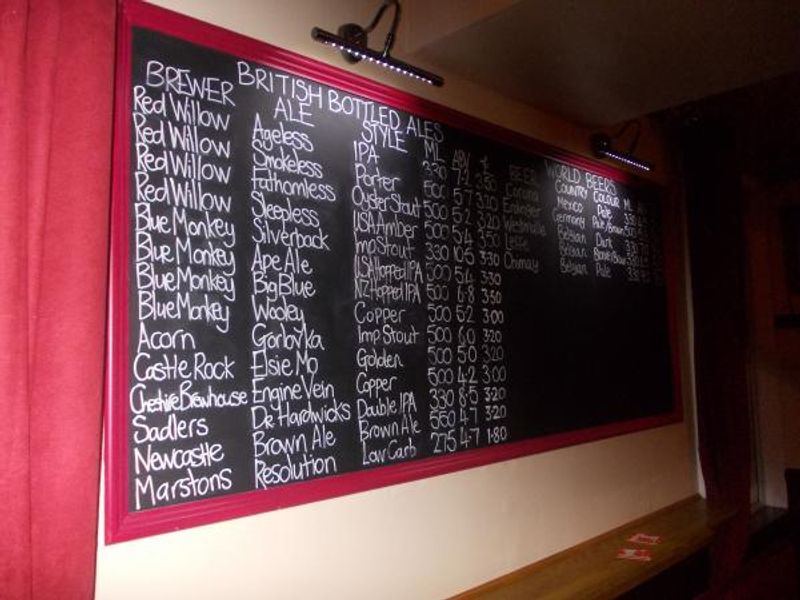 BRITISH BOTTLED ALES
BREWER ALE STYLE ML ABV £
Red Willow Ageless IPA 330 7.2 3.50
Red Willow Smokeless Porter 500 5.7 3.20
Red Willow Fathomless Oyster Stout 500 5.2 3.20
Red Willow Sleepless USA Amber 500 5.4 3.50
Blue Monkey Silverback Imp Stout 330 10.5 3.30
Blue Monkey Ape Ale USA Hopped IPA 500 5.4 3.30
Blue Monkey Big Blue NZ Hopped IPA 500 6.8 3.50
Blue Monkey Wooley Copper 500 5.2 3.00
Acorn Gorlovka Imp Stout 500 6.0 3.20
Castle Rock Elsie Mo Golden 500 5.0 3.20
Cheshire Brewhouse Engine Vein Copper 500 4.2 3.00
Sadlers Dr Hardwicks Double IPA 330 8.5 3.20
Newcastle Brown Ale Brown Ale 550 4.7 3.20
Marstons Resolution Low Carb 275 4.7 1.80
WORLD BEERS
BEER COUNTRY COLOUR ML
Corona Mexico Pale
Erdinger Germany Pale/Brown
Westmalle Belgian Dark
Belgian
Chimay Belgian Pale